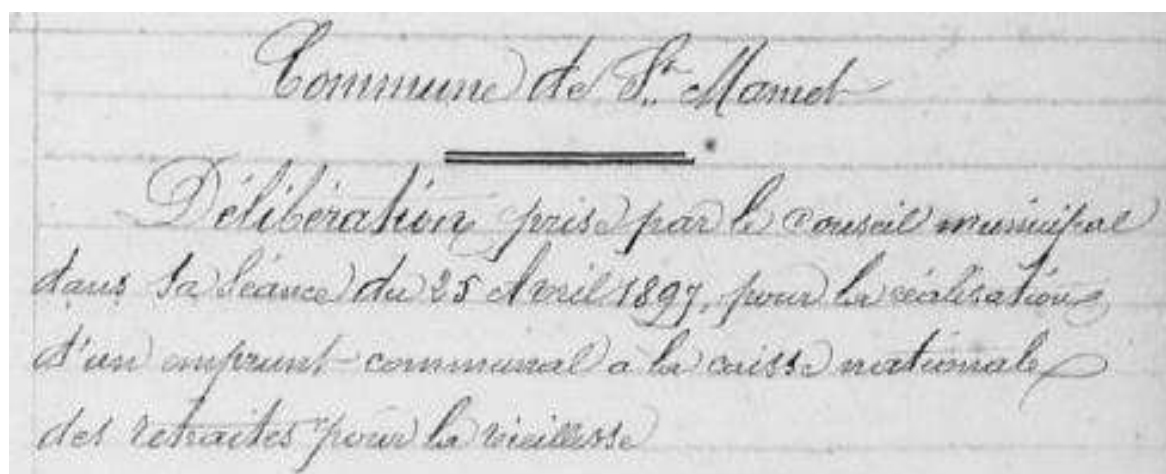 Commune de St. Mamet
Délibération prise par le Conseil municipal
dans sa Séance du 25 Avril 1897, pour la réalisation
d'un emprunt communal a la caisse nationale
des retraites pour la vieillesse